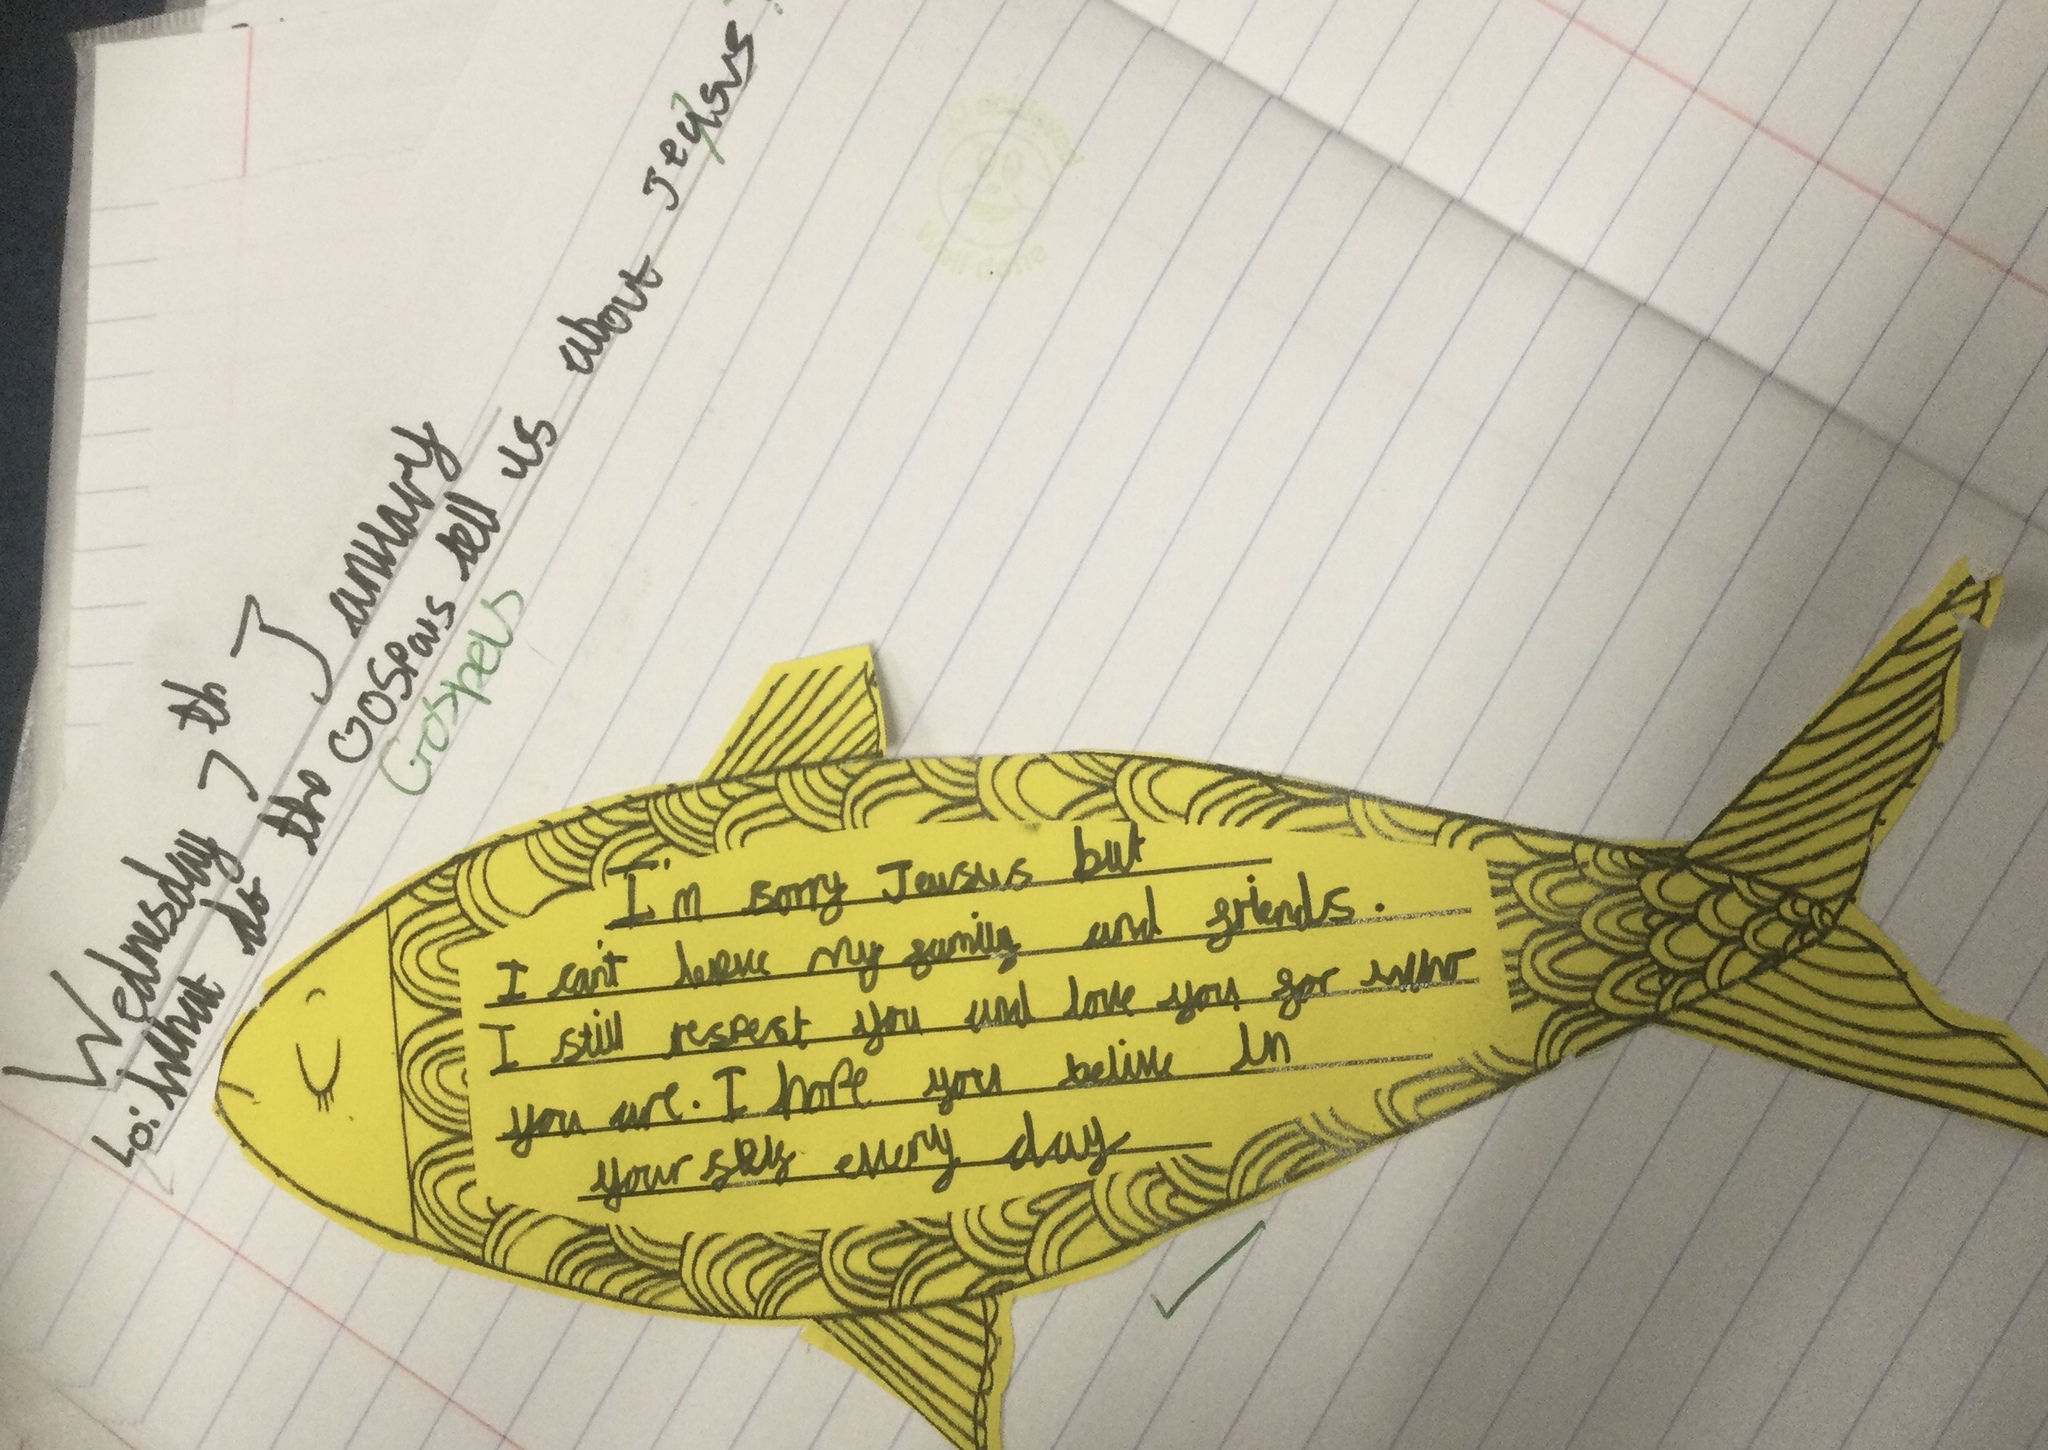 Wednesday 7th January
Lo: what do the Gospals tell us about Jegsus?
Gospels
I'm sorry Jeusus but
I can't leave my family and friends.
I still respest you and love you for who
you are. I hope you belive in
your sely every day
Well done